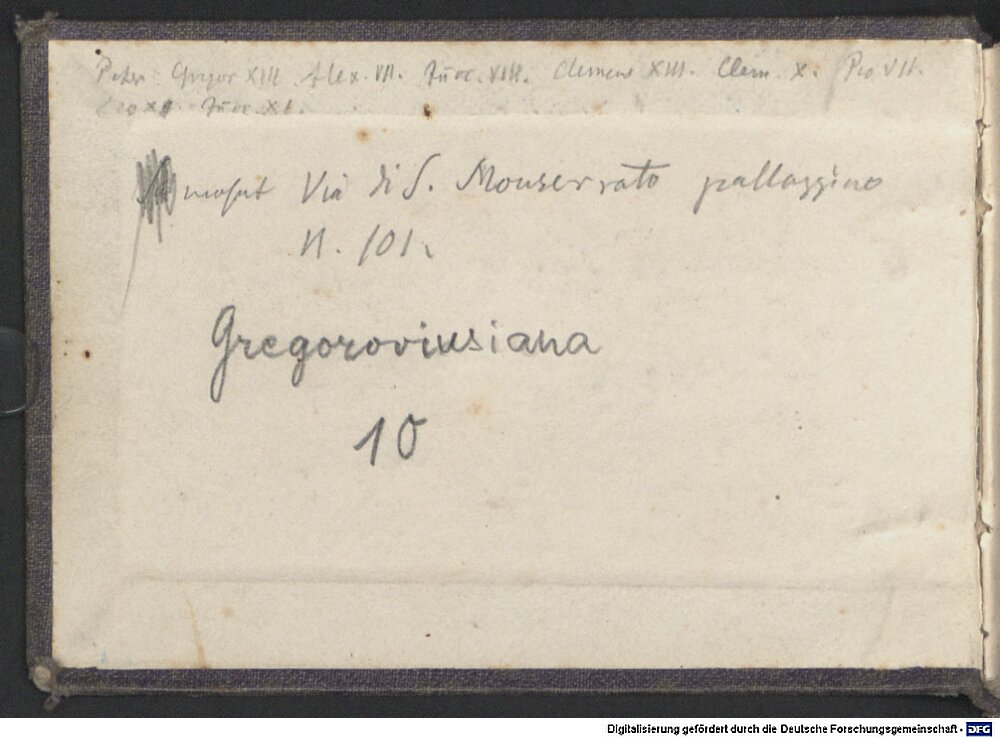 Peter Gregor XIII Alex. VII. Innoc. VIII. Clemens XIII. Clem X. Pio VII.
Leo XI Innoc. XI.
Via di S. Monserrato
N. 101.
Gregoroviusiana
10
Digitalisierung gefördert durch die Deutsche Forschungsgemeinschaft - DFG